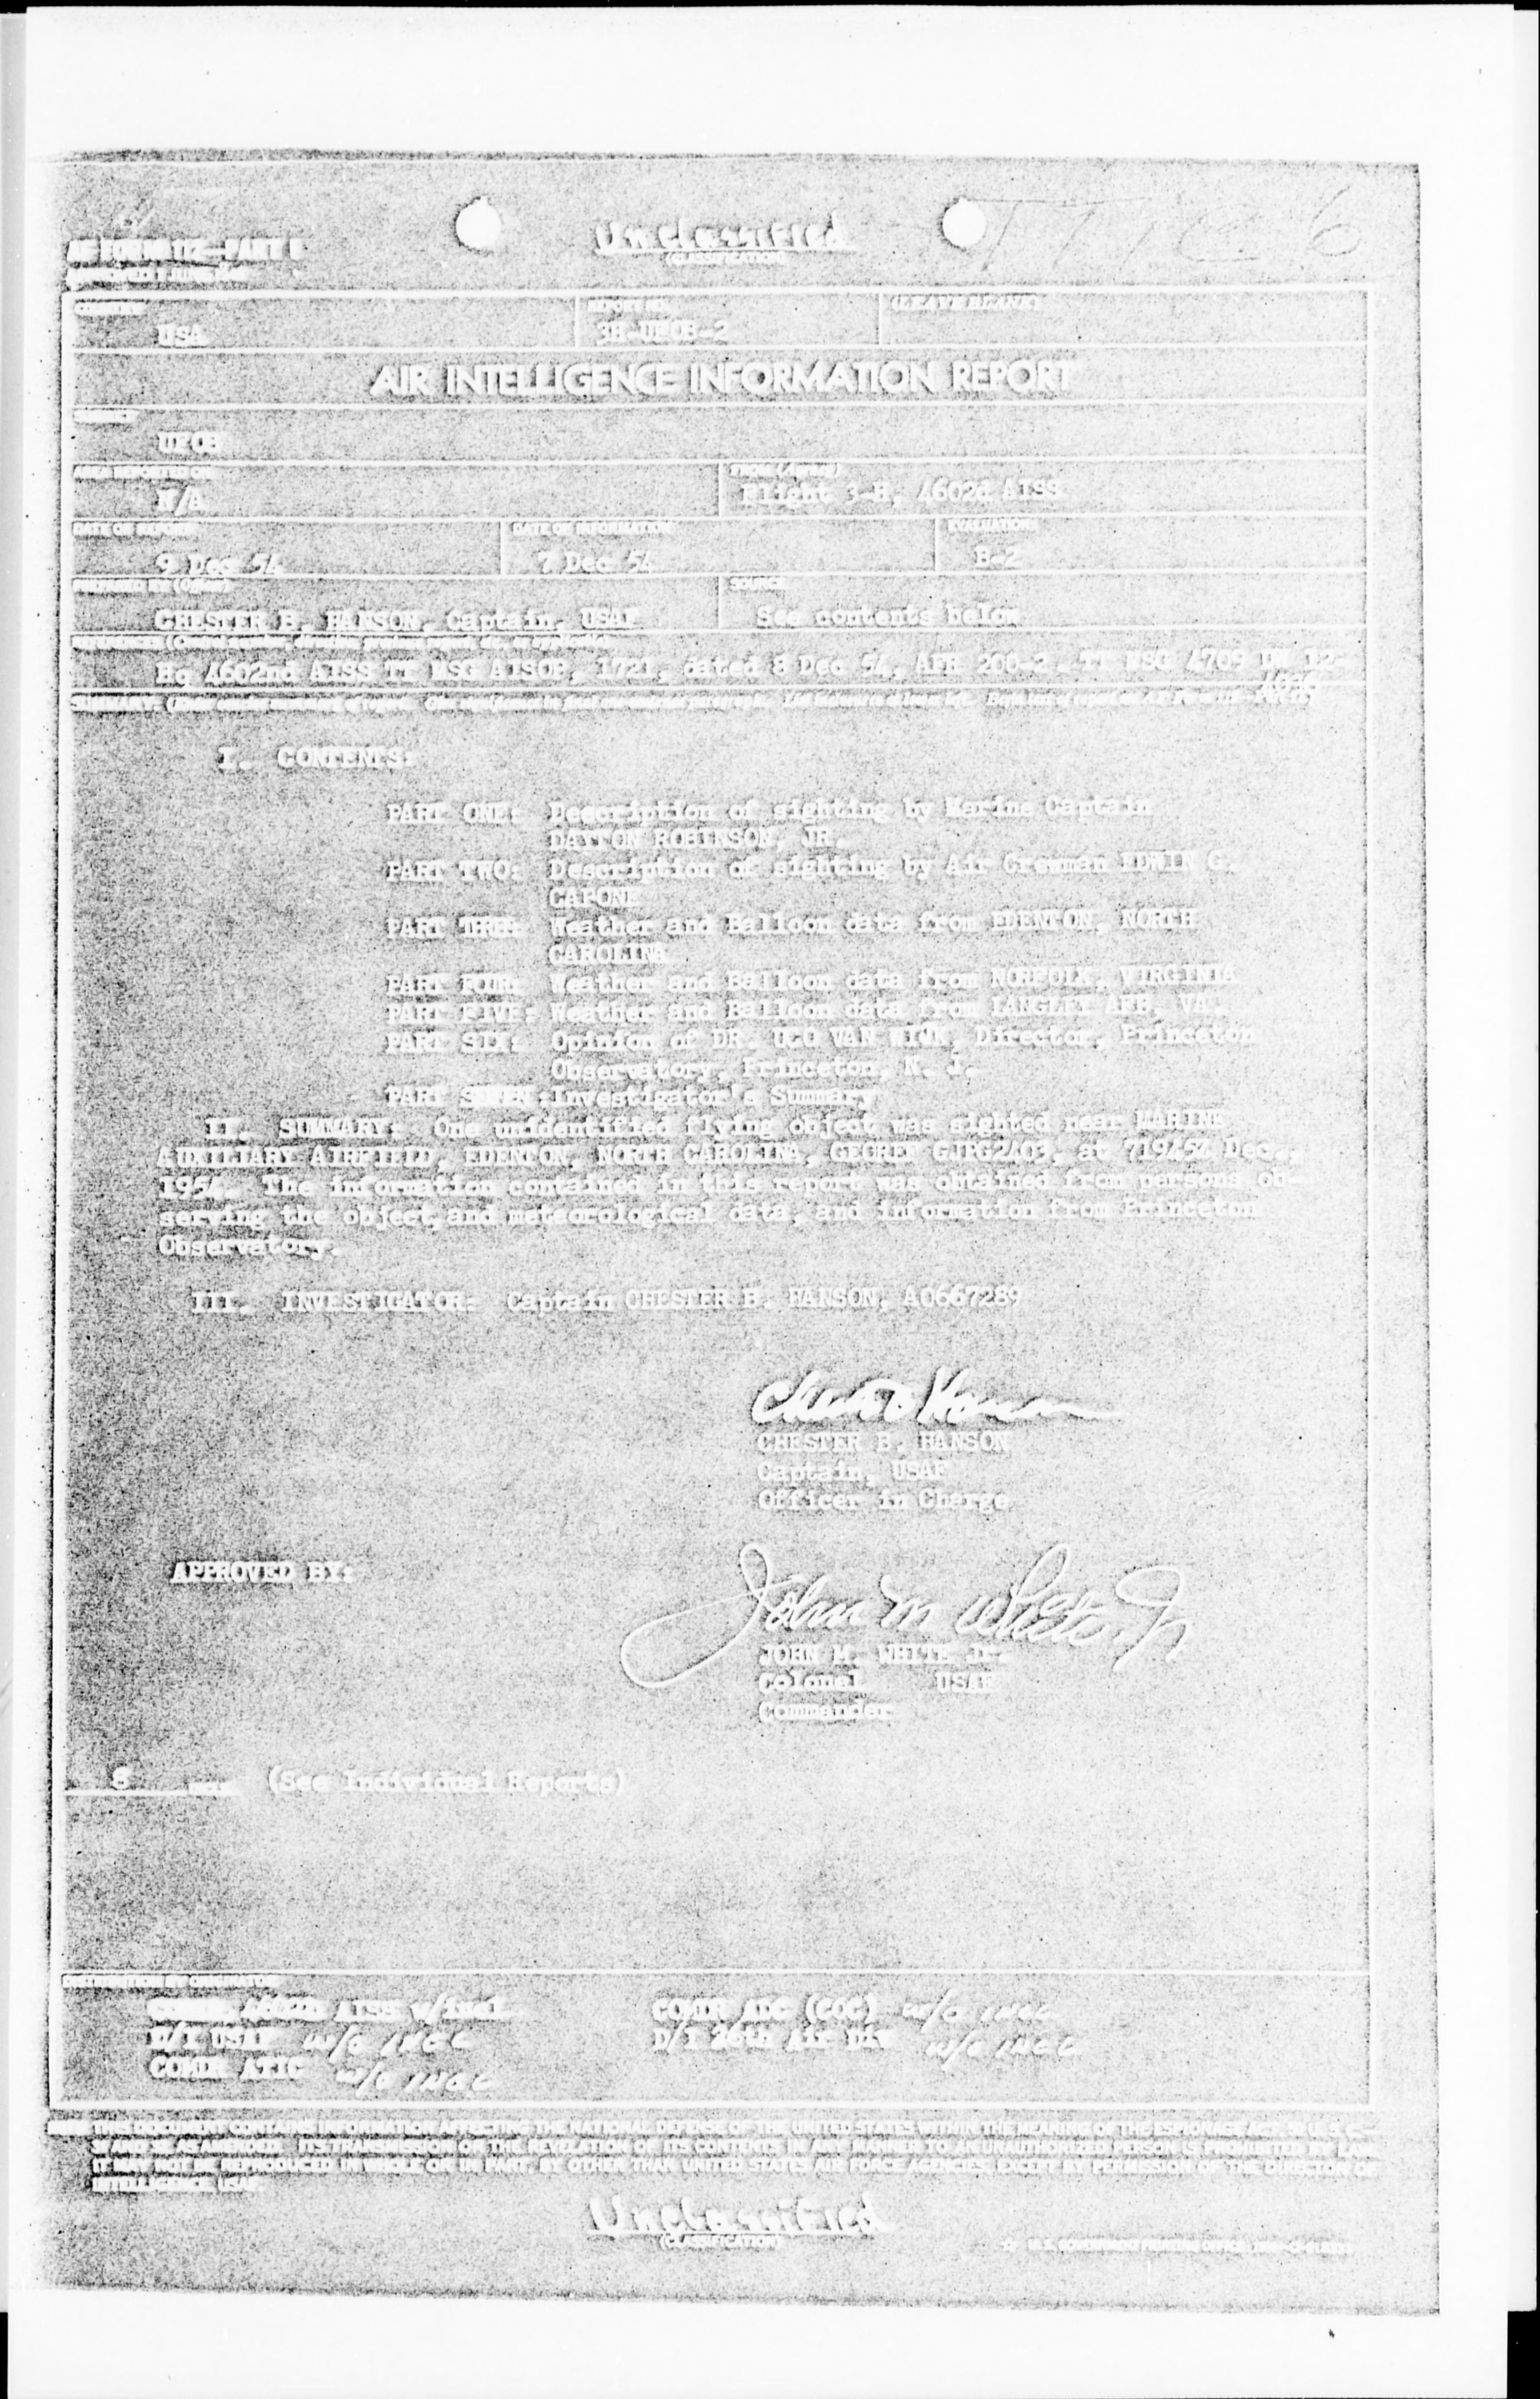 AF FORM 112—PART I
Unclassified
(CLASSIFICATION)
COUNTRY
REPORT NO.
(LEAVE BLANK)
USA
3H-UFOB-2
AIR INTELLIGENCE INFORMATION REPORT
SUBJECT
UFOB
AREA REPORTED ON
FROM (Agency)
N/A
Flight 3-H, 4602d AISS
DATE OF REPORT
DATE OF INFORMATION
EVALUATION
9 Dec 54
7 Dec 54
B-2
PREPARED BY (Officer)
SOURCE
CHESTER B. HANSON, Captain, USAF
See contents below
Hq 4602nd AISS TT MSG AISOP, 1721, dated 8 Dec 54, AFR 200-2, TT MSG 4709 DW 12-
I. CONTENTS:
PART ONE: Description of sighting by Marine Captain
DAYTON ROBINSON, JR.
PART TWO: Description of sighting by Air Crewman EDWIN G.
CAPONE
PART THREE: Weather and Balloon data from EDENTON, NORTH
CAROLINA
PART FOUR: Weather and Balloon data from NORFOLK, VIRGINIA
PART FIVE: Weather and Balloon data from LANGLEY AFB, VA.
PART SIX: Opinion of DR. VAN Director, Princeton
Observatory, Princeton, N. J.
PART SEVEN: Investigator's Summary
II. SUMMARY: One unidentified flying object was sighted near MARINE
AUXILIARY AIRFIELD, EDENTON, NORTH CAROLINA, GEOREF GJPG2403, at 71945Z Dec.,
1954. The information contained in this report was obtained from persons ob
serving the object, and meteorological data, and information from Princeton
Observatory.
III. INVESTIGATOR: Captain CHESTER B. HANSON, AO667289
CHESTER B. HANSON
Captain, USAF
Officer in Charge
APPROVED BY:
John M White Jr
JOHN M. WHITE JR.
Colonel USAF
Commander
8 INCLS (See Individual Reports)
DISTRIBUTION BY ORIGINATOR
4602d AISS w/incl
COMDR ADC (COC) w/o incl
D/I USAF w/o incl
D/I 26th Air Div w/o incl
COMDR ATIC w/o incl
NOTE: THIS DOCUMENT CONTAINS INFORMATION AFFECTING THE NATIONAL DEFENSE OF THE UNITED STATES WITHIN THE MEANING OF THE ESPIONAGE ACT, 50 U. S. C.—
31 AND 32, AS AMENDED. ITS TRANSMISSION OR THE REVELATION OF ITS CONTENTS IN ANY MANNER TO AN UNAUTHORIZED PERSON IS PROHIBITED BY LAW.
IT MAY NOT BE REPRODUCED IN WHOLE OR IN PART, BY OTHER THAN UNITED STATES AIR FORCE AGENCIES, EXCEPT BY PERMISSION OF THE DIRECTOR OF
INTELLIGENCE, USAF.
Unclassified
(CLASSIFICATION)